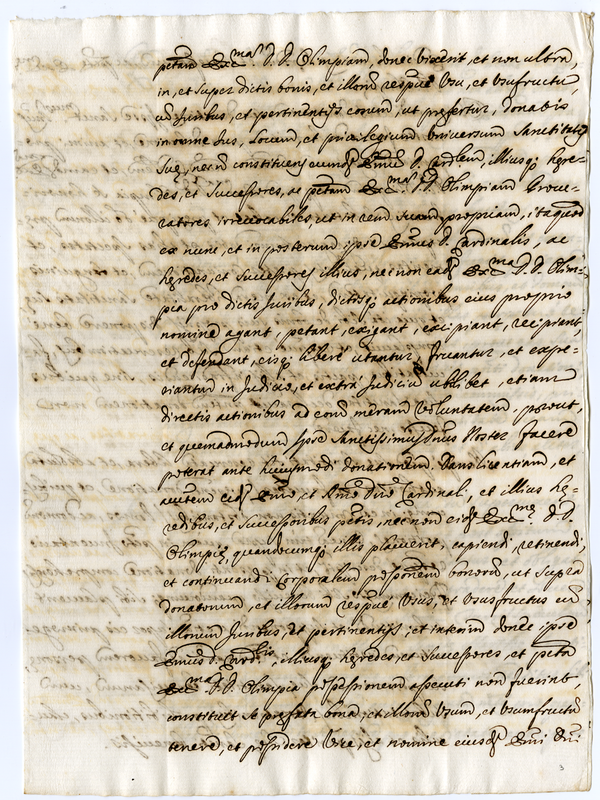 pctam Excma. D. D. Olimpiam, donec vixerit, et non ultra,
in, et super dictis bonis, et illorũ respuè Usu, et Usufructu,
cũ Juribus, et pertinentijs eorum, ut prefertur, donatis
in omne Jus, Locum, et privilegium Universum Sanctitatis
Suę, nec nõ constituens eumdẽ Emũ D. Cardlem, illiusq; hęre-
des, et Successores, ac pctam Excmam D. D. Olimpiam Procu-
ratores irrevocabiles, ut in rem suam propriam, ita quod
ex nunc, et in posterum ipse Emus D. Cardinalis, ac
hęredes, et Successores illius, nec non eadẽ Excma D. D. Olim-
pia pro dictis Juribus, dictisq; actionibus eius proprio
nomine agant, petant, exigant, excipiant, recipiant,
et defendant, eisq; liberè utantur, fruantur, et expe-
riantur in Judicio, et extrà Judiciũ ubilibet, etiam
directis actionibus ad eorũ meram voluntatem, prout,
et quemadmodum ipse Sanctissimus Dnus Noster facere
poterat ante huiusmodi donationem. Dans licentiam, et
auctem eidẽ Emo, et Rmo Dno Cardinali, et illius hę-
redibus, et Successoribus pctis, nec non eidẽ Excmę D. D.
Olimpię, quandocumq; illis placuerit, capiendi, retinendi,
et continuandi Corporalem possionem bonorũ, ut supra
donatorum, et illorum respuè Usus, et Ususfructus cũ
illorum Juribus, et pertinentijs, et interim donec ipse
Emus D. Cardlis, illiusq; hęredes, et Successores, et pcta
Excma D. D. Olimpia possessionem assecuti non fuerint,
constituit se prefata bona, et illorũ Usum, et Usumfructũ
tenere, et possidere Vice, et nomine eiusdẽ Emi Dni
3